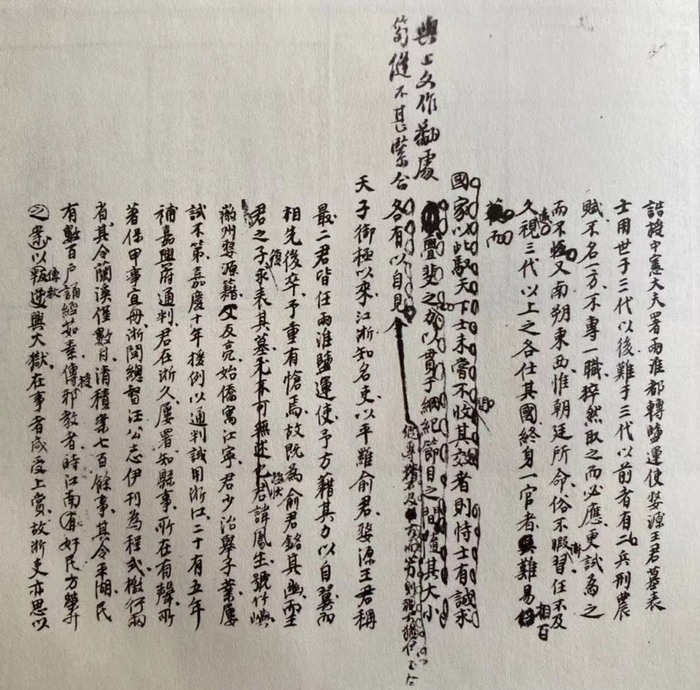 與上文作勸處
筍縫不甚緊合
誥授中憲大夫署兩淮都轉鹽運使婺源王君墓表
士用世于三代以後難于三代以前者有二兵刑農
賦不名一方不專一職猝然取之而必應更試為之
而不又南朔東西惟朝廷所命俗不暇習任不及
久視三代以上之各仕其國終身一官者難易相百
而
國家以此馭天下士未嘗不收其效者則恃士有誠求
亹斐之力以貫乎綱紀節目之間隨其大小
各有以自見
天子御極以來江浙知名吏以平羅俞君婺源王君稱
最二君皆任兩淮鹽運使予方藉其力以自翼而
相先後卒予重有愴焉故既為俞君銘其幽而王
君之子復求表其墓尤不可無述也君諱鳳生號竹嶼
徽州婺源籍父友亮始僑寓江寧君少治舉子業屢
試不第嘉慶十年援例以通判試用浙江二十有五年
補嘉興府通判君在浙久屢署知縣事所在有聲所
著保甲事宜冊浙閩總督汪公志伊刊為程式檄行兩
省其令蘭溪僅數月清積案七百餘事其令平湖民
有數百戶誦經茹素傳邪教者時江南有奸民方榮升
傳教之案以叛逆興大獄在事者咸受上賞故浙吏亦思以